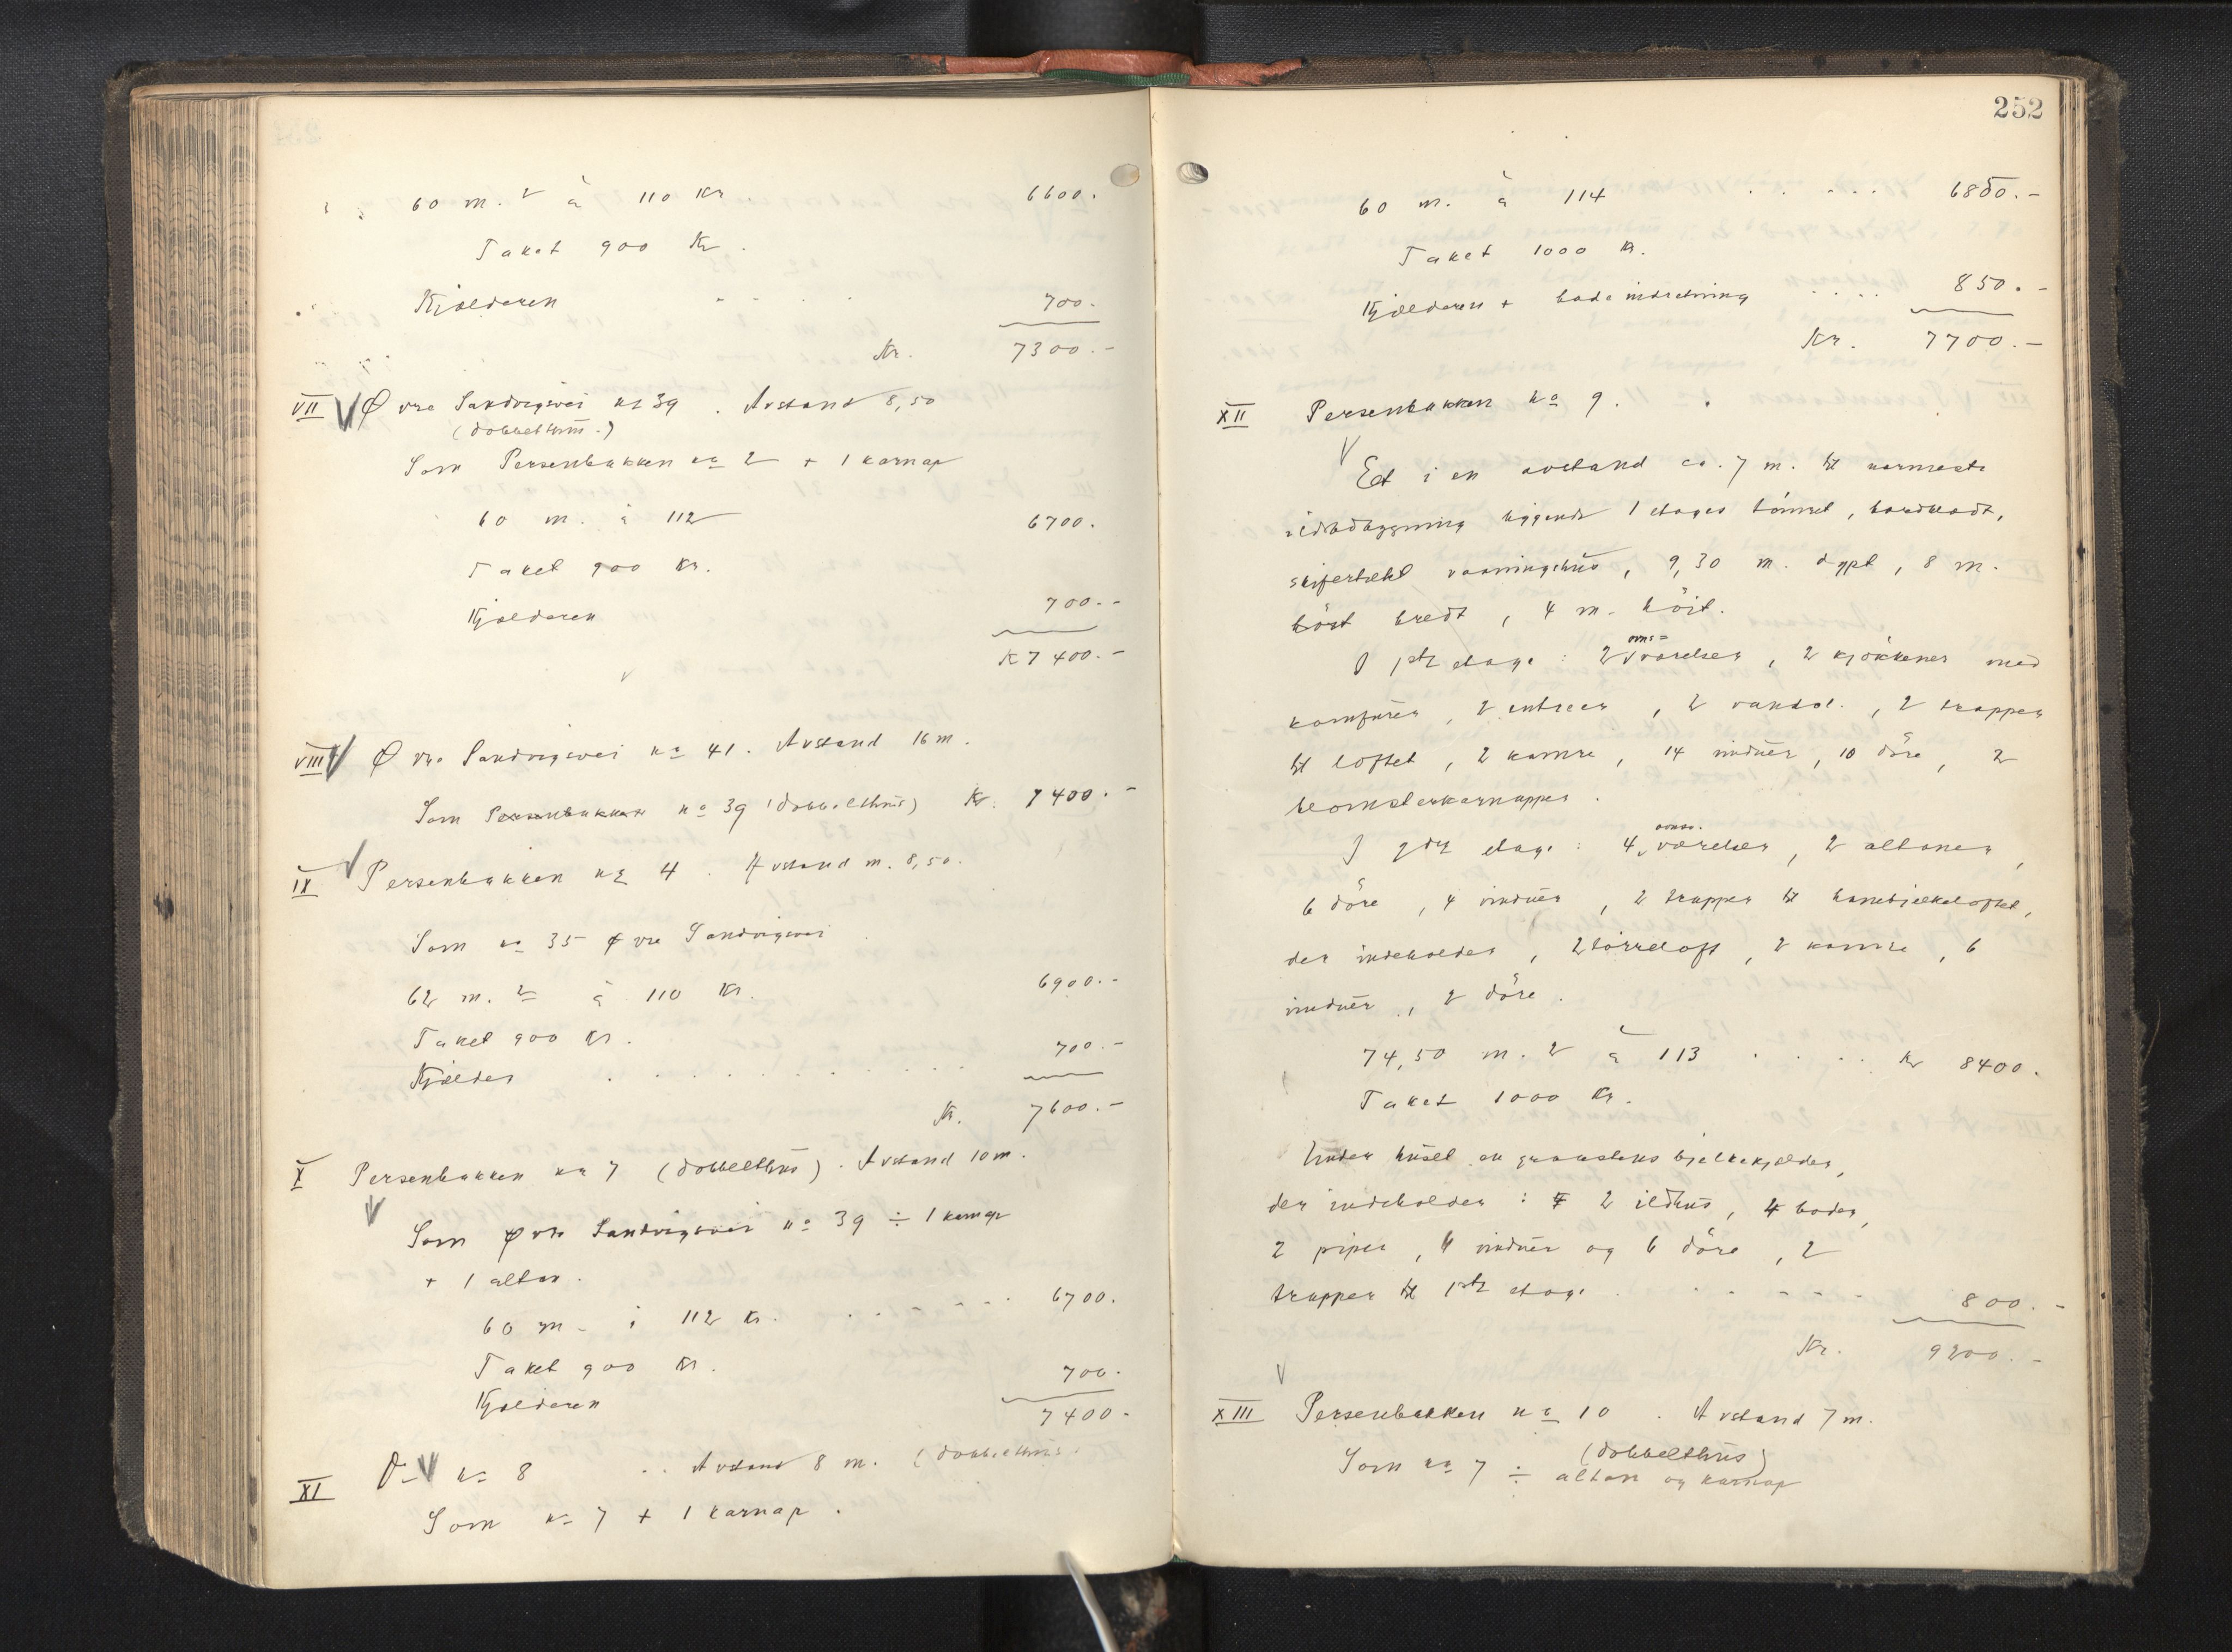 60 m.² à 110 Kr. 6600.
Taket 900 Kr.
Kjælderen 700.
Kr. 7300.-
VII Øvre Sandvigsvei no 39. Avstand 8,50
(dobbelthus.)
Som Persenbakken no 2 + 1 karnap
60 m. à 112 6700.
Taket 900 Kr.
Kjælderen 700.-
K 7400.-
VIII Øvre Sandvigsvei no 41. Avstand 16 m.
Som Persenbakken no 39 (dobbelthus) Kr. 7400.-
IX Persenbakken no 4. Avstand m. 8,50.
Som no 35 Øvre Sandvigsvei
62 m.² à 110 Kr. 6900.-
Taket 900 Kr.
Kjælder . . . . . . . . . 700.-
Kr. 7600.-
X Persenbakken no 7 (dobbelthus). Avstand 10 m.
Som Øvre Sandvigsvei no 39 ÷ 1 karnap
+ 1 altan.
60 m. à 112 Kr. . . . . . . 6700.
Taket 900 Kr.
Kjælderen 700.
7400.-
XI no 8 . . Avstand 8 m. (dobbelthus.
Som no 7 + 1 karnap.
252
60 m. à 114 . . . . . 6850.-
Taket 1000 Kr.
Kjælderen + bade indretning . . . . 850.-
Kr. 7700.-
XII Persenbakken no 9.
Et i en avstand ca. 7 m. til nærmeste
ildstedbygning liggende 1 etages tømret, bordklædt,
skifertækt vaaningshus, 9,30 m. dypt, 8 m.
bredt, 4 m. høit.
I 1ste etage: 2 ovns= værelser, 2 kjøkkener med
komfurer, 2 entreer, 2 vandcl., 2 trapper
til loftet, 2 kamre, 14 vinduer, 10 døre, 2
blomsterkarnapper.
I 2den etage: 4 ovns. værelser, 2 altaner,
6 døre, 4 vinduer, 2 trapper til hanebjelkeloftet,
der indeholder, 2 tørreloft, 2 kamre, 6
vinduer, 2 døre.
74,50 m.² à 113 . . . . Kr 8400.
Taket 1000 Kr.
Under huset en graastens bjelkekjelder,
der indeholder: 2 ildhus, 4 boder,
2 piper, 4 vinduer og 6 døre, 2
trapper til 1ste etage . . . . . . 800.-
Kr. 9200.-
XIII Persenbakken no 10. Avstand 7 m.
(dobbelthus)
Som no 7 ÷ altan og karnap